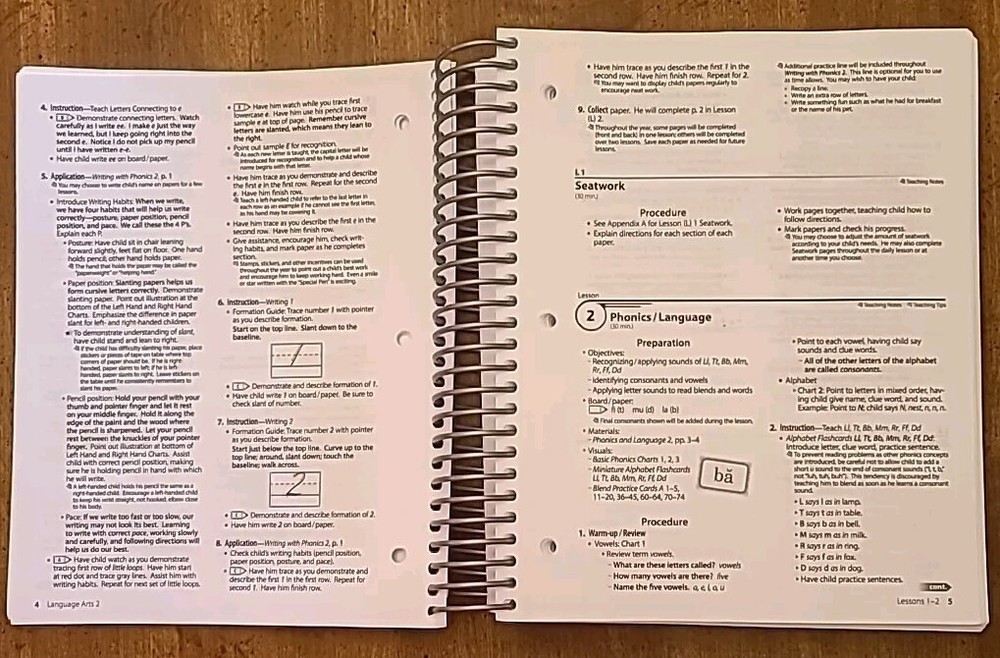 4. Instruction—Teach Letters Connecting to e
B Demonstrate connecting letters. Watch
carefully as I write ee. I make e just the way
we learned, but I keep going right into the
second e. Notice I do not pick up my pencil
until I have written e-e.
• Have child write ee on board/paper.
5. Application—Writing with Phonics 2, p. 1
You may choose to write child's name on papers for a few
lessons.
• Introduce Writing Habits: When we write,
we have four habits that will help us write
correctly—posture, paper position, pencil
position, and pace. We call these the 4 P's.
Explain each P.
• Posture: Have child sit in chair leaning
forward slightly, feet flat on floor. One hand
holds pencil; other hand holds paper.
The hand that holds the paper may be called the
"paperweight" or "helping hand."
• Paper position: Slanting papers helps us
form cursive letters correctly. Demonstrate
slanting paper. Point out illustration at the
bottom of the Left Hand and Right Hand
Charts. Emphasize the difference in paper
slant for left- and right-handed children.
To demonstrate understanding of slant,
have child stand and lean to right.
If the child has difficulty slanting his paper, place
stickers or pieces of tape on table where top
corners of paper should be. If he is right-
handed, paper slants to left; if he is left-
handed, paper slants to right. Leave stickers on
the table until he consistently remembers to
slant his paper.
• Pencil position: Hold your pencil with your
thumb and pointer finger and let it rest
on your middle finger. Hold it along the
edge of the paint and the wood where
the pencil is sharpened. Let your pencil
rest between the knuckles of your pointer
finger. Point out illustration at bottom of
Left Hand and Right Hand Charts. Assist
child with correct pencil position, making
sure he is holding pencil in hand with which
he will write.
A left-handed child holds his pencil the same as a
right-handed child. Encourage a left-handed child
to keep his wrist straight, not hooked, elbow close
to his body.
• Pace: If we write too fast or too slow, our
writing may not look its best. Learning
to write with correct pace, working slowly
and carefully, and following directions will
help us do our best.
• A Have child watch as you demonstrate
tracing first row of little loops. Have him start
at red dot and trace gray lines. Assist him with
writing habits. Repeat for next set of little loops.
4 Language Arts 2
• Have him watch while you trace first
lowercase e. Have him use his pencil to trace
sample e at top of page. Remember cursive
letters are slanted, which means they lean to
the right.
• Point out sample E for recognition.
As each new letter is taught, the capital letter will be
introduced for recognition and to help a child whose
name begins with that letter.
• Have him trace as you demonstrate and describe
the first e in the first row. Repeat for the second
e. Have him finish row.
Teach a left-handed child to refer to the last letter in
each row as an example if he cannot see the first letter,
as his hand may be covering it.
• Have him trace as you describe the first e in the
second row. Have him finish row.
• Give assistance, encourage him, check writ-
ing habits, and mark paper as he completes
section.
Stamps, stickers, and other incentives can be used
throughout the year to point out a child's best work
and encourage him to keep working hard. Even a smile
or star written with the "Special Pen" is exciting.
6. Instruction—Writing 1
• Formation Guide: Trace number 1 with pointer
as you describe formation.
Start on the top line. Slant down to the
baseline.
1
• C Demonstrate and describe formation of 1.
• Have child write 1 on board/paper. Be sure to
check slant of number.
7. Instruction—Writing 2
• Formation Guide: Trace number 2 with pointer
as you describe formation.
Start just below the top line. Curve up to the
top line; around, slant down; touch the
baseline; walk across.
2
• C Demonstrate and describe formation of 2.
• Have him write 2 on board/paper.
8. Application—Writing with Phonics 2, p. 1
• Check child's writing habits (pencil position,
paper position, posture, and pace).
• C Have him trace as you demonstrate and
describe the first 1 in the first row. Repeat for
second 1. Have him finish row.
• Have him trace as you describe the first 1 in the
second row. Have him finish row. Repeat for 2.
You may want to display child's papers regularly to
encourage neat work.
9. Collect paper. He will complete p. 2 in Lesson
(L) 2.
Throughout the year, some pages will be completed
(front and back) in one lesson; others will be completed
over two lessons. Save each paper as needed for future
lessons.
Additional practice line will be included throughout
Writing with Phonics 2. This line is optional for you to use
as time allows. You may wish to have your child:
• Recopy a line.
• Write an extra row of letters.
• Write something fun such as what he had for breakfast
or the name of his pet.
L 1
Seatwork
(30 min.)
Teaching Notes
Procedure
• See Appendix A for Lesson (L) 1 Seatwork.
• Explain directions for each section of each
paper.
• Work pages together, teaching child how to
follow directions.
• Mark papers and check his progress.
You may choose to adjust the amount of seatwork
according to your child's needs. He may also complete
Seatwork pages throughout the daily lesson or at
another time you choose.
Lesson
2 Phonics/Language
(30 min.)
Teaching Notes Teaching Tips
Preparation
• Objectives:
- Recognizing/applying sounds of Ll, Tt, Bb, Mm,
Rr, Ff, Dd
- Identifying consonants and vowels
- Applying letter sounds to read blends and words
• Board/paper:
fi (t) mu (d) la (b)
Final consonants shown will be added during the lesson.
• Materials:
- Phonics and Language 2, pp. 3–4
• Visuals:
- Basic Phonics Charts 1, 2, 3
- Miniature Alphabet Flashcards
Ll, Tt, Bb, Mm, Rr, Ff, Dd
- Blend Practice Cards A 1–5,
11–20, 36–45, 60–64, 70–74
bă
Procedure
1. Warm-up / Review
• Vowels: Chart 1
• Review term vowels.
- What are these letters called? vowels
- How many vowels are there? five
- Name the five vowels. a, e, i, o, u
• Point to each vowel, having child say
sounds and clue words.
- All of the other letters of the alphabet
are called consonants.
• Alphabet
• Chart 2: Point to letters in mixed order, hav-
ing child give name, clue word, and sound.
Example: Point to N; child says N, nest, n, n, n.
2. Instruction—Teach Ll, Tt, Bb, Mm, Rr, Ff, Dd
• Alphabet Flashcards Ll, Tt, Bb, Mm, Rr, Ff, Dd:
Introduce letter, clue word, practice sound.
To prevent reading problems as other phonics concepts
are introduced, be careful not to allow child to add a
short u sound to the end of consonant sounds ("l, t, b,"
not "luh, tuh, buh"). This tendency is discouraged by
teaching him to blend as soon as he learns a consonant
sound.
• L says l as in lamp.
• T says t as in table.
• B says b as in bell.
• M says m as in milk.
• R says r as in ring.
• F says f as in fox.
• D says d as in dog.
• Have child practice sentences.
cont.
Lessons 1–2 5